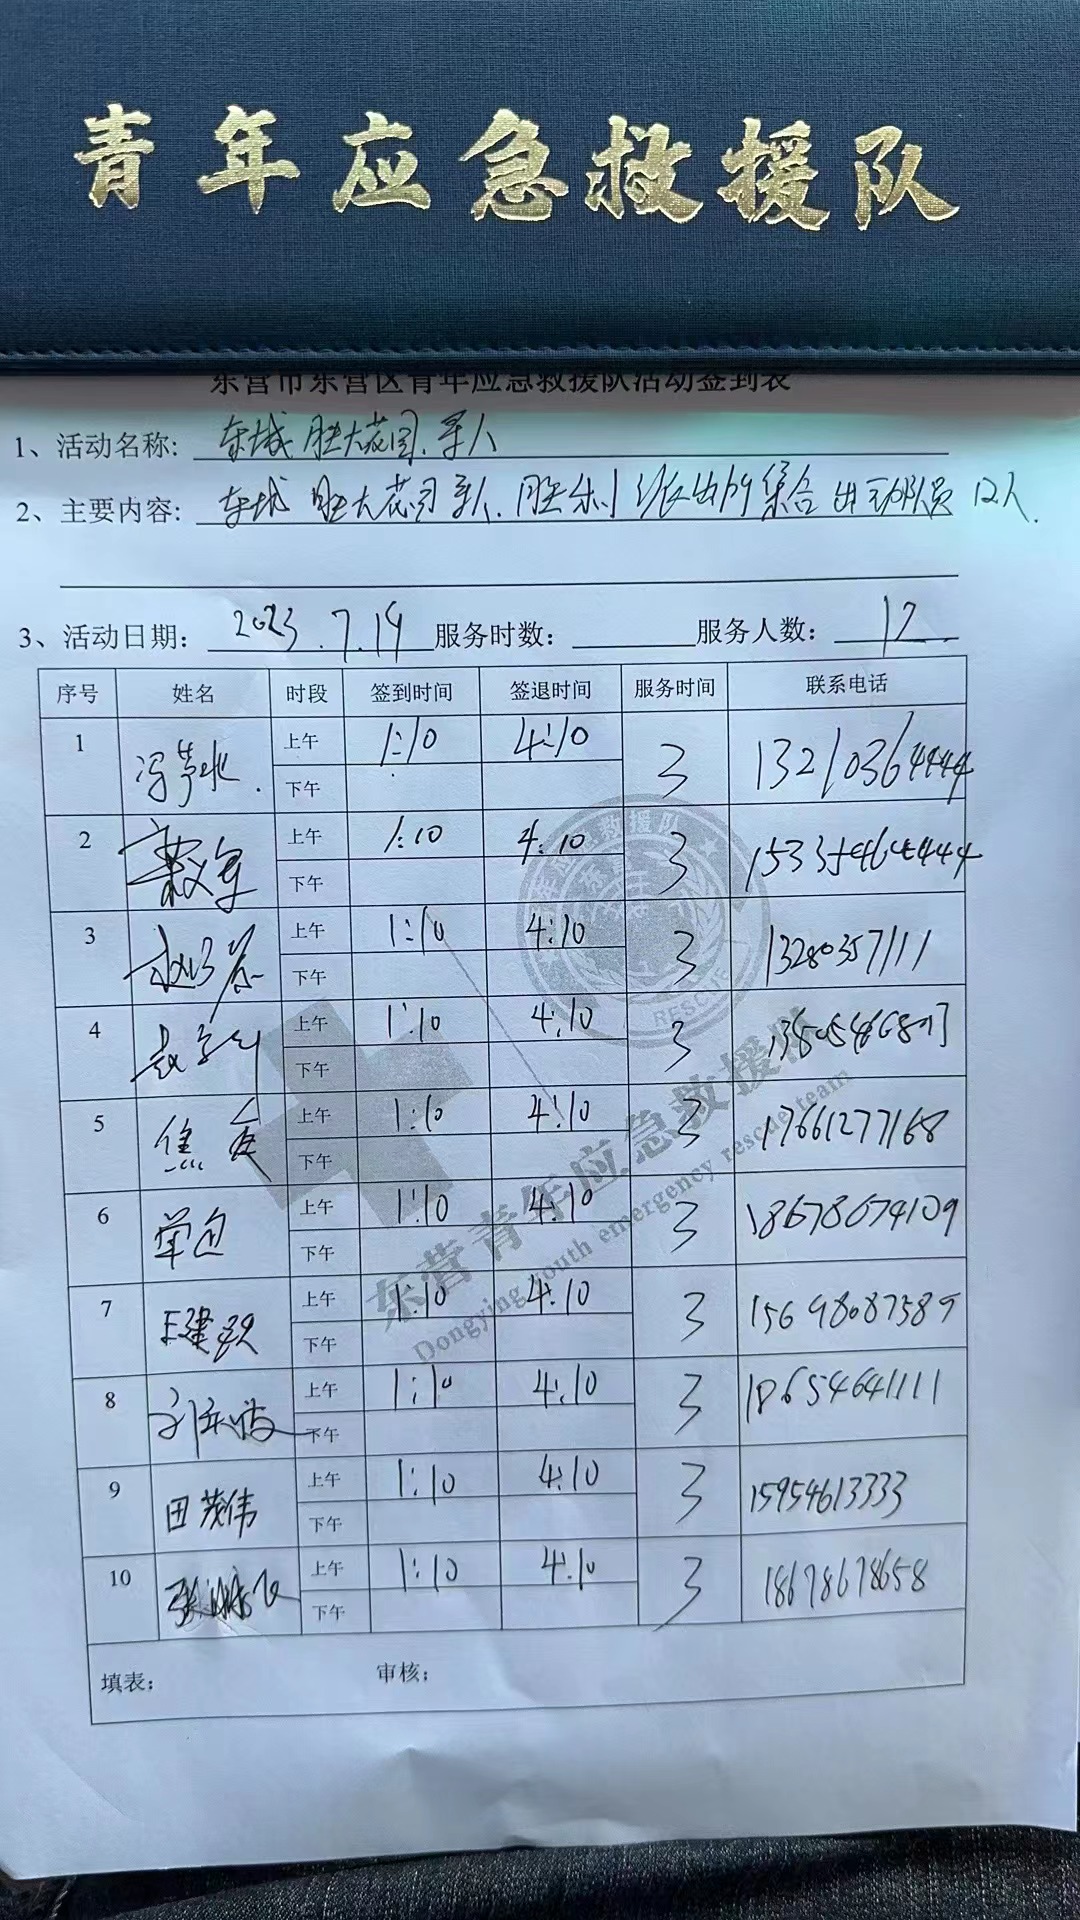 青年应急救援队
东营市东营区青年应急救援队活动签到表
1、活动名称: 东城胜大花园.寻人
2、主要内容: 东城胜大花园寻人.胜利派出所集合出动队员12人.
3、活动日期: 2023.7.19 服务时数: 服务人数: 12
序号 姓名 时段 签到时间 签退时间 服务时间 联系电话
1 上午 1:10 4:10 3 13210364444
下午
2 上午 1:10 4:10 3 15335464444
下午
3 上午 1:10 4:10 3 13280357111
下午
4 上午 1:10 4:10 3
下午
5 焦 上午 1:10 4:10 3 17661277168
下午
6 上午 1:10 4:10 3 18678674109
下午
7 王建 上午 1:10 4:10 3 15698087589
下午
8 上午 1:10 4:10 3 18654641111
下午
9 田茂伟 上午 1:10 4:10 3 15954613333
下午
10 上午 1:10 4:10 3 18678678658
下午
填表: 审核:
东营青年应急救援队
Dongying youth emergency rescue team
RESCUE